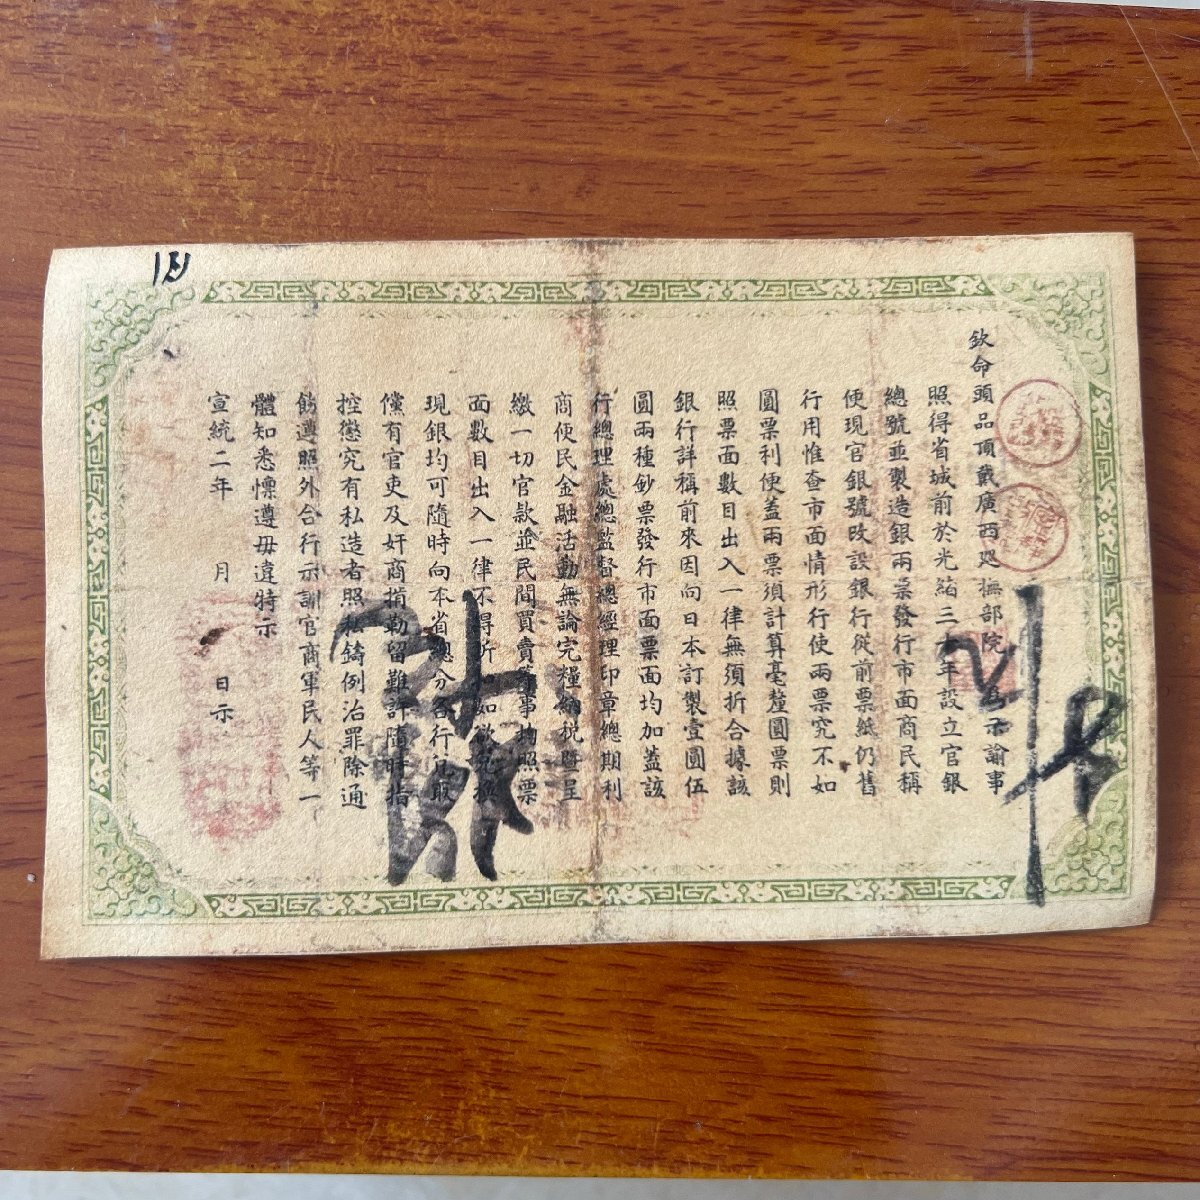 欽命頭品頂戴廣西巡撫部院 示諭事
照得省城前於光緒三十年設立官銀
總號並製造銀兩票發行市面商民稱
便現官銀號改設銀行從前票紙仍舊
行用惟查市面情形行使兩票究不如
圓票利便蓋兩票須計算毫釐圓票則
照票面數目出入一律無須折合據該
銀行詳稱前來因向日本訂製壹圓伍
圓兩種鈔票發行市面票面均加蓋該
行總理處總監督總經理印章總期利
商便民金融活動無論完糧納稅暨呈
繳一切官款並民間買賣等事均照票
面數目出入一律不得折 如欲兌換
現銀均可隨時向本省總分各行兌取
儻有官吏及奸商掯勒留難許隨時指
控懲究有私造者照私鑄例治罪除通
飭遵照外合行示訓官商軍民人等一
體知悉懍遵毋違特示
宣統二年 月 日示